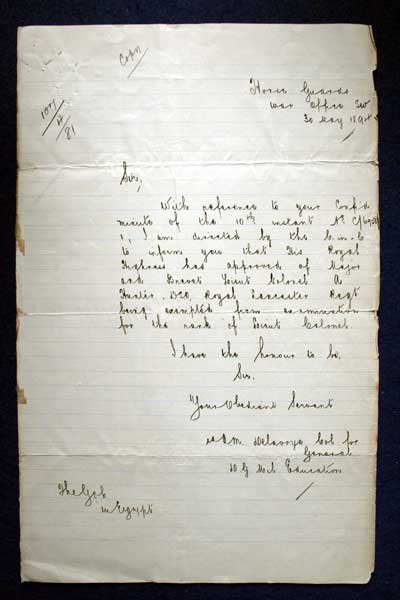 Copy
1007
4
81
Horse Guards
War Office SW
30 May 189
Sir,
With reference to your Confid
minute of the 10th instant No
1, I am directed by the C.in.C
to inform you that His Royal
Highness has approved of Major
and Brevet Lieut Colonel A
Hunter DSO, Royal Lancaster Regt
being exempted from examination
for the rank of Lieut Colonel
I have the honour to be,
Sir,
Your Obedient Servant
Col for
General
D G Mil Education
The
in Egypt